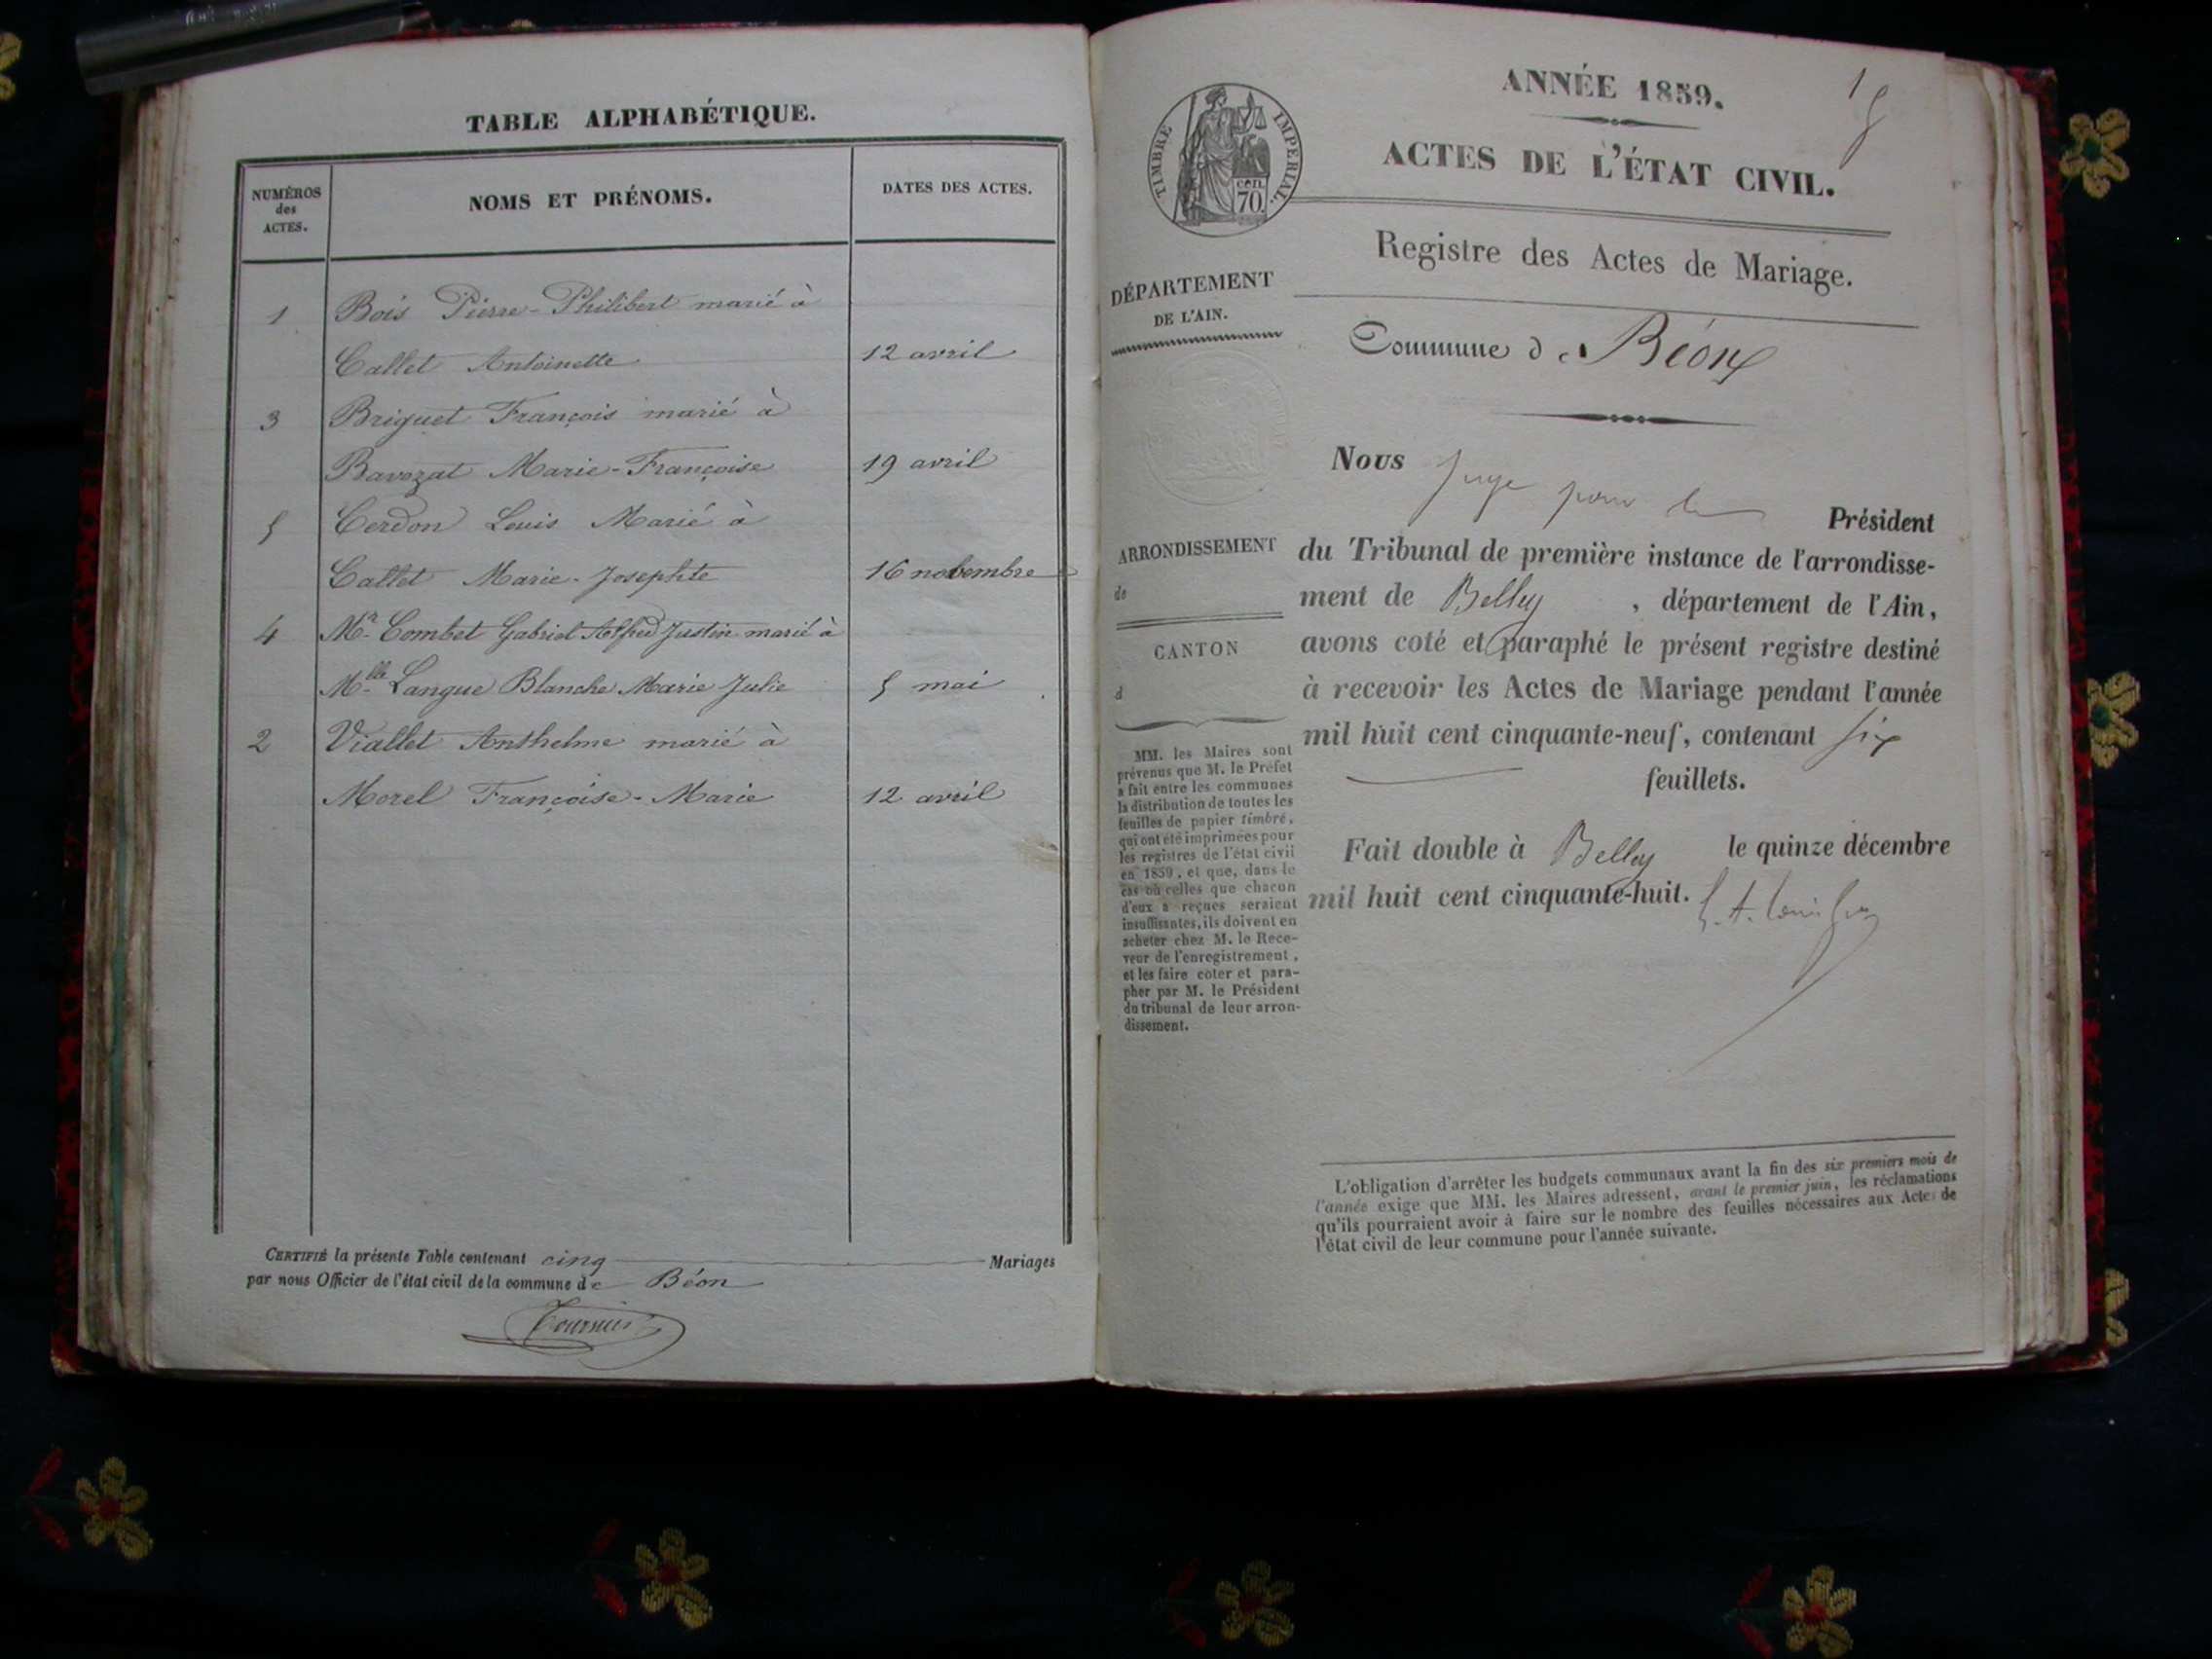 TABLE ALPHABÉTIQUE.
NUMÉROS des ACTES.
NOMS ET PRÉNOMS.
DATES DES ACTES.
1 Bois Pierre-Philibert marié à
Callet Antoinette 12 avril
3 Briguet François marié à
Bavozat Marie-Françoise 19 avril
5 Cerdon Louis Marié à
Callet Marie-Josephte 16 novembre
4 Mr. Combet Gabriel Alfred Justin marié à
Mlle Langue Blanche Marie Julie 5 mai
2 Viallet Anthelme marié à
Morel Françoise-Marie 12 avril
CERTIFIÉ la présente Table contenant cinq Mariages
par nous Officier de l'état civil de la commune de Béon
ANNÉE 1859.
ACTES DE L'ÉTAT CIVIL.
TIMBRE IMPERIAL.
cen. 70.
Registre des Actes de Mariage.
DÉPARTEMENT
DE L'AIN.
Commune de Béon
Nous Juge pour le Président
du Tribunal de première instance de l'arrondisse-
ment de Belley, département de l'Ain,
avons coté et paraphé le présent registre destiné
à recevoir les Actes de Mariage pendant l'année
mil huit cent cinquante-neuf, contenant six
feuillets.
Fait double à Belley le quinze décembre
mil huit cent cinquante-huit.
ARRONDISSEMENT
de
CANTON
d
MM. les Maires sont
prévenus que M. le Préfet
a fait entre les communes
la distribution de toutes les
feuilles de papier timbré,
qui ont été imprimées pour
les registres de l'état civil
en 1859, et que, dans le
cas où celles que chacun
d'eux a reçues seraient
insuffisantes, ils doivent en
acheter chez M. le Rece-
veur de l'enregistrement,
et les faire coter et para-
pher par M. le Président
du tribunal de leur arron-
dissement.
L'obligation d'arrêter les budgets communaux avant la fin des six premiers mois de
l'année exige que MM. les Maires adressent, avant le premier juin, les réclamations
qu'ils pourraient avoir à faire sur le nombre des feuilles nécessaires aux Actes de
l'état civil de leur commune pour l'année suivante.